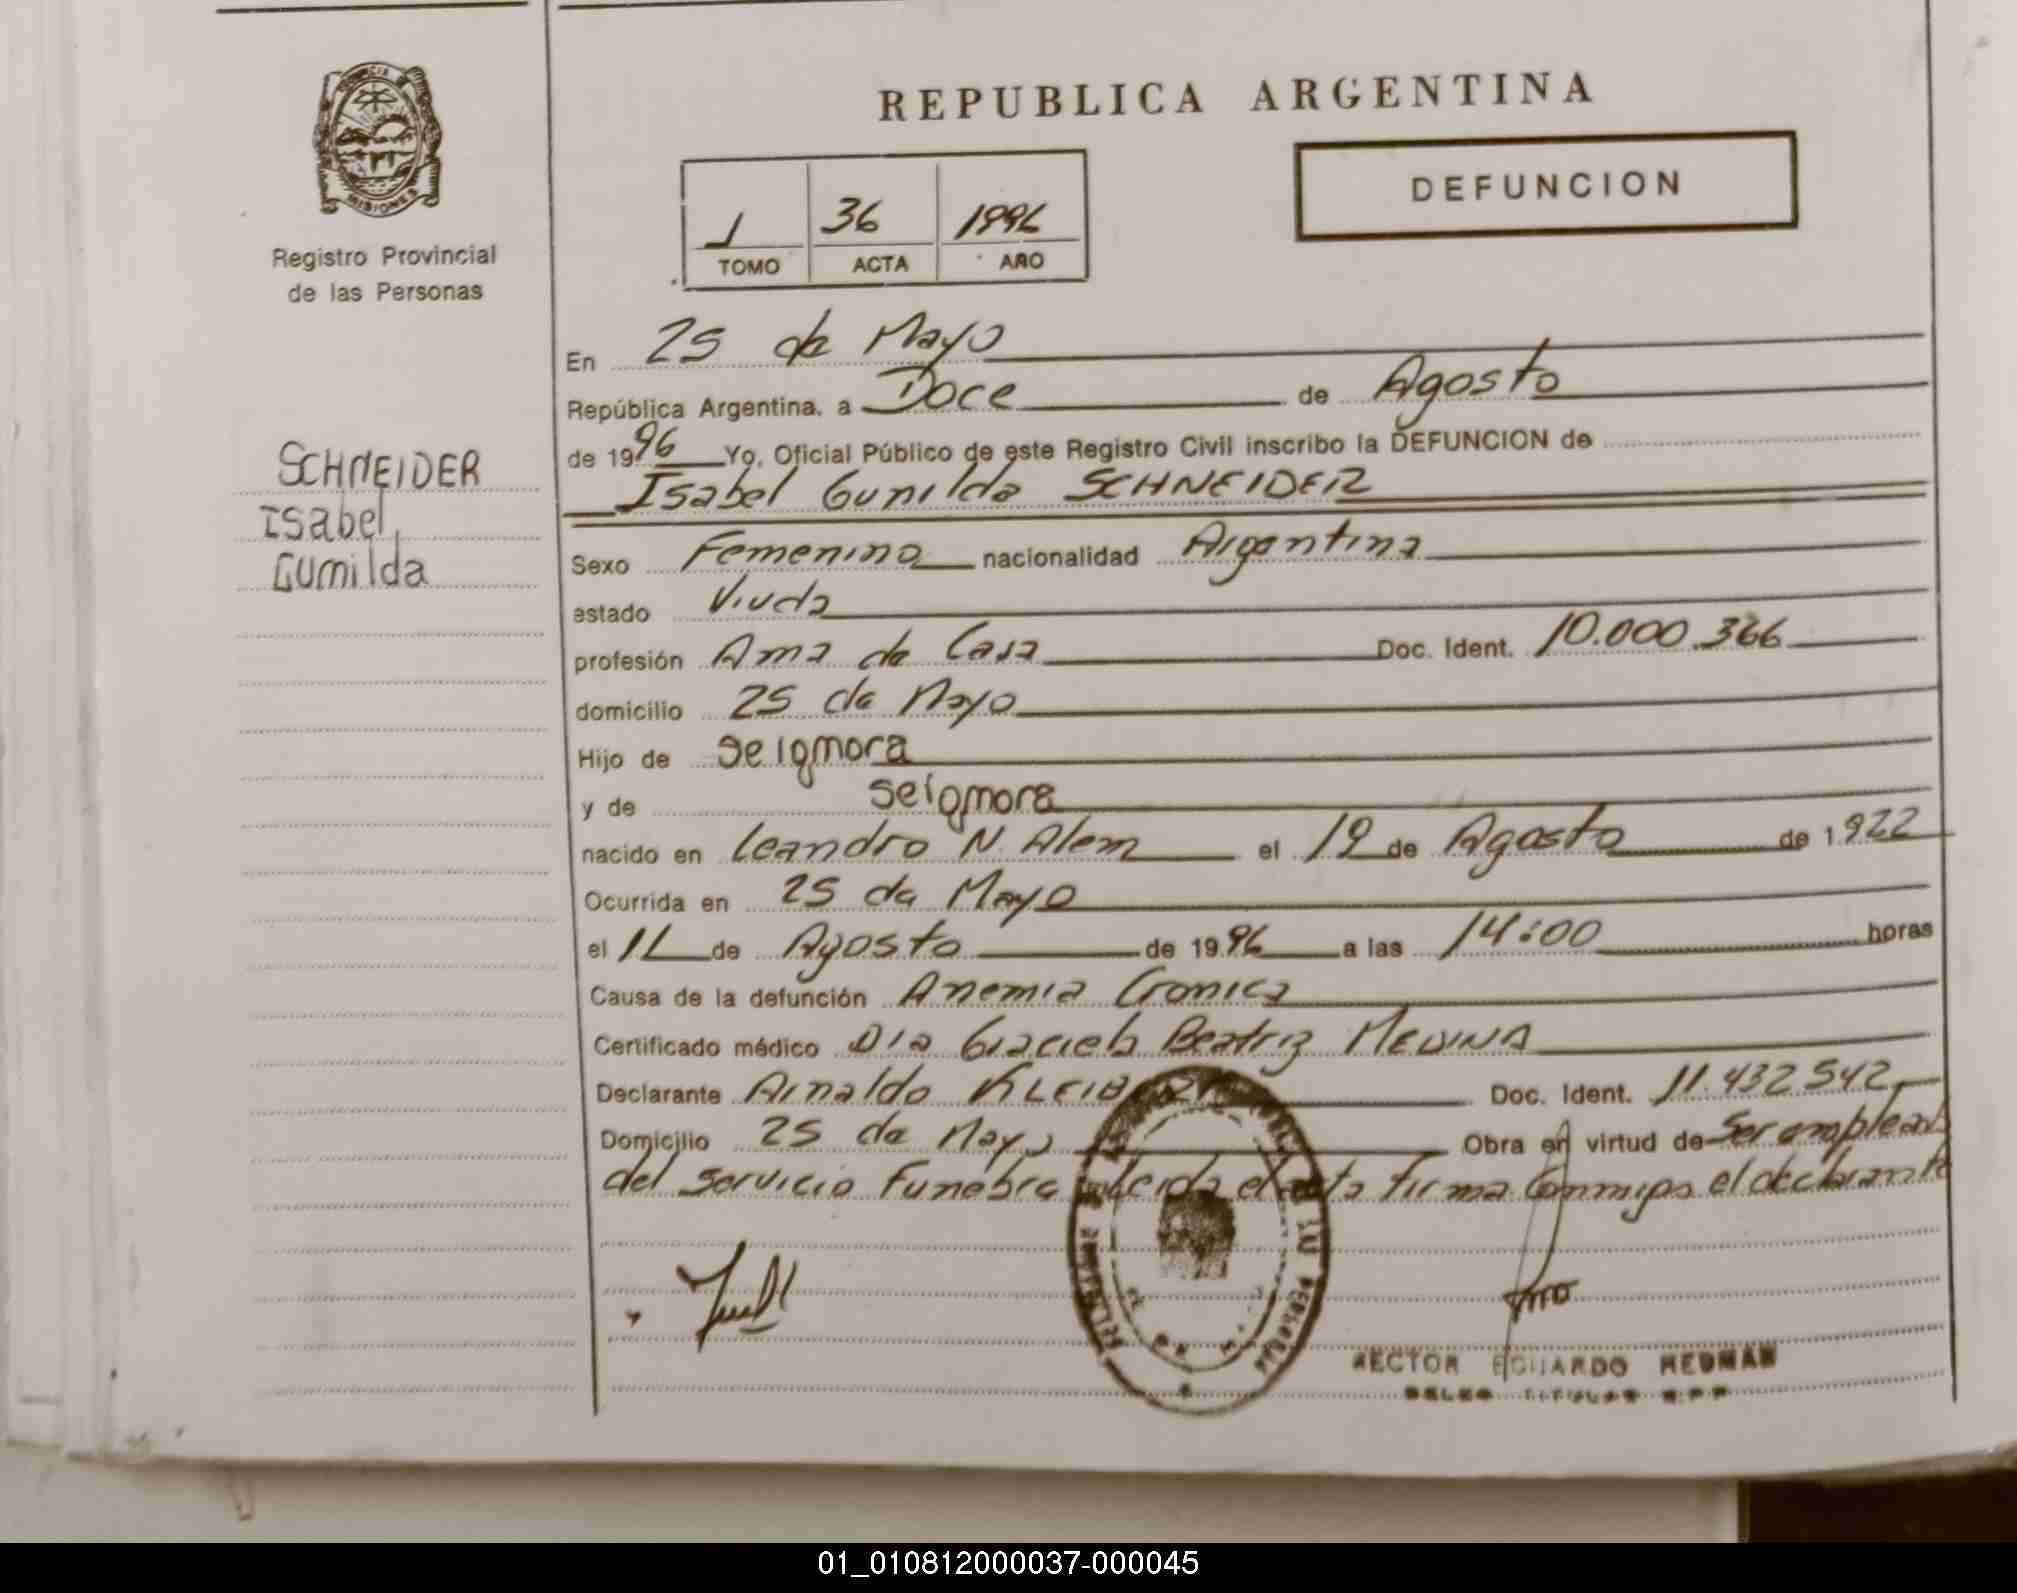 PROVINCIA DE
MISIONES
Registro Provincial
de las Personas
REPUBLICA ARGENTINA
DEFUNCION
1 36 1996
TOMO ACTA AÑO
SCHNEIDER
Isabel
Gumilda
En 25 de Mayo
República Argentina, a Doce de Agosto
de 1996 Yo, Oficial Público de este Registro Civil inscribo la DEFUNCION de
Isabel Gunilda SCHNEIDER
Sexo Femenino nacionalidad Argentina
estado Viuda
profesión Ama de Casa Doc. Ident. 10.000.366
domicilio 25 de Mayo
Hijo de se ignora
y de se ignora
nacido en Leandro N. Alem el 19 de Agosto de 1922
Ocurrida en 25 de Mayo
el 11 de Agosto de 1996 a las 14:00 horas
Causa de la defunción Anemia Cronica
Certificado médico Dra Graciela Beatriz MEDINA
Declarante Arnaldo Doc. Ident. 11.432542
Domicilio 25 de Mayo Obra en virtud de Ser empleado
del servicio Funebre Leida el acta firma Conmigo el declarante
HECTOR EDUARDO REDMAN
TITULAR R.P.P
01_010812000037-000045